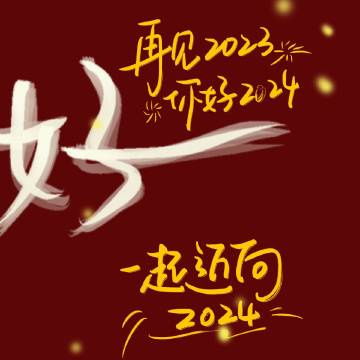 再见2023
你好2024
好
一起迈向
2024